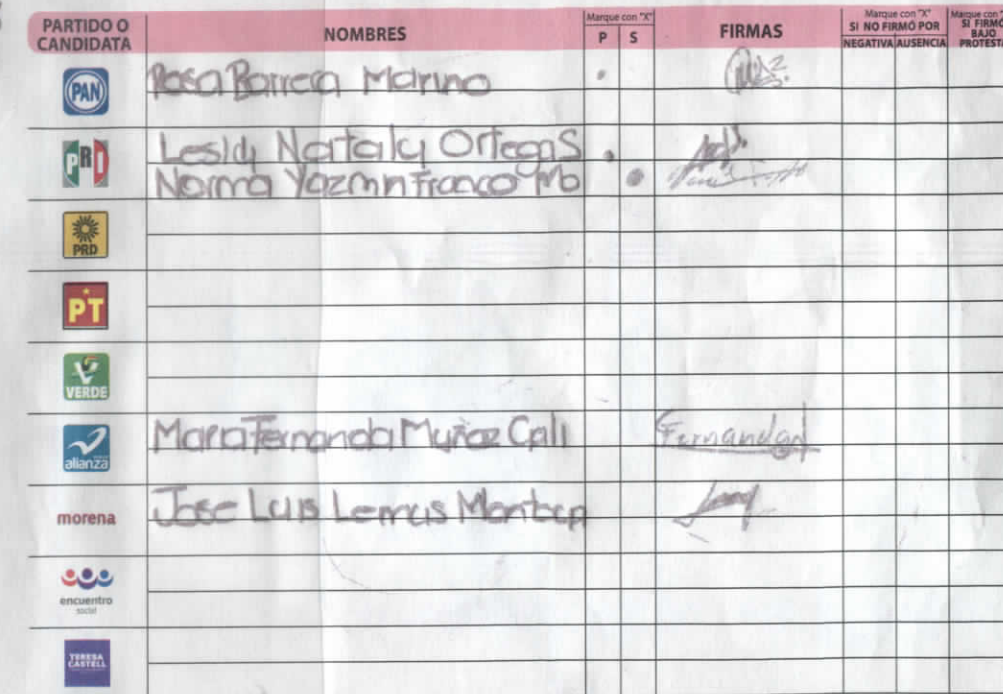 PARTIDO O CANDIDATA
NOMBRES
Marque con "X"
P S
FIRMAS
Marque con "X" SI NO FIRMÓ POR
NEGATIVA AUSENCIA
Marque con SI FIRMÓ BAJO PROTESTA
PAN
Rosa Barrera Marino
PRI
Lesldy Nataly Ortega S
Norma Yazmn Franco Mo
PRD
PT
VERDE
alianza
Maria Fernanda Muñoz Cali
Fernanda
morena
Jose Luis Lemus Montoya
encuentro
social
TERESA
CASTELL